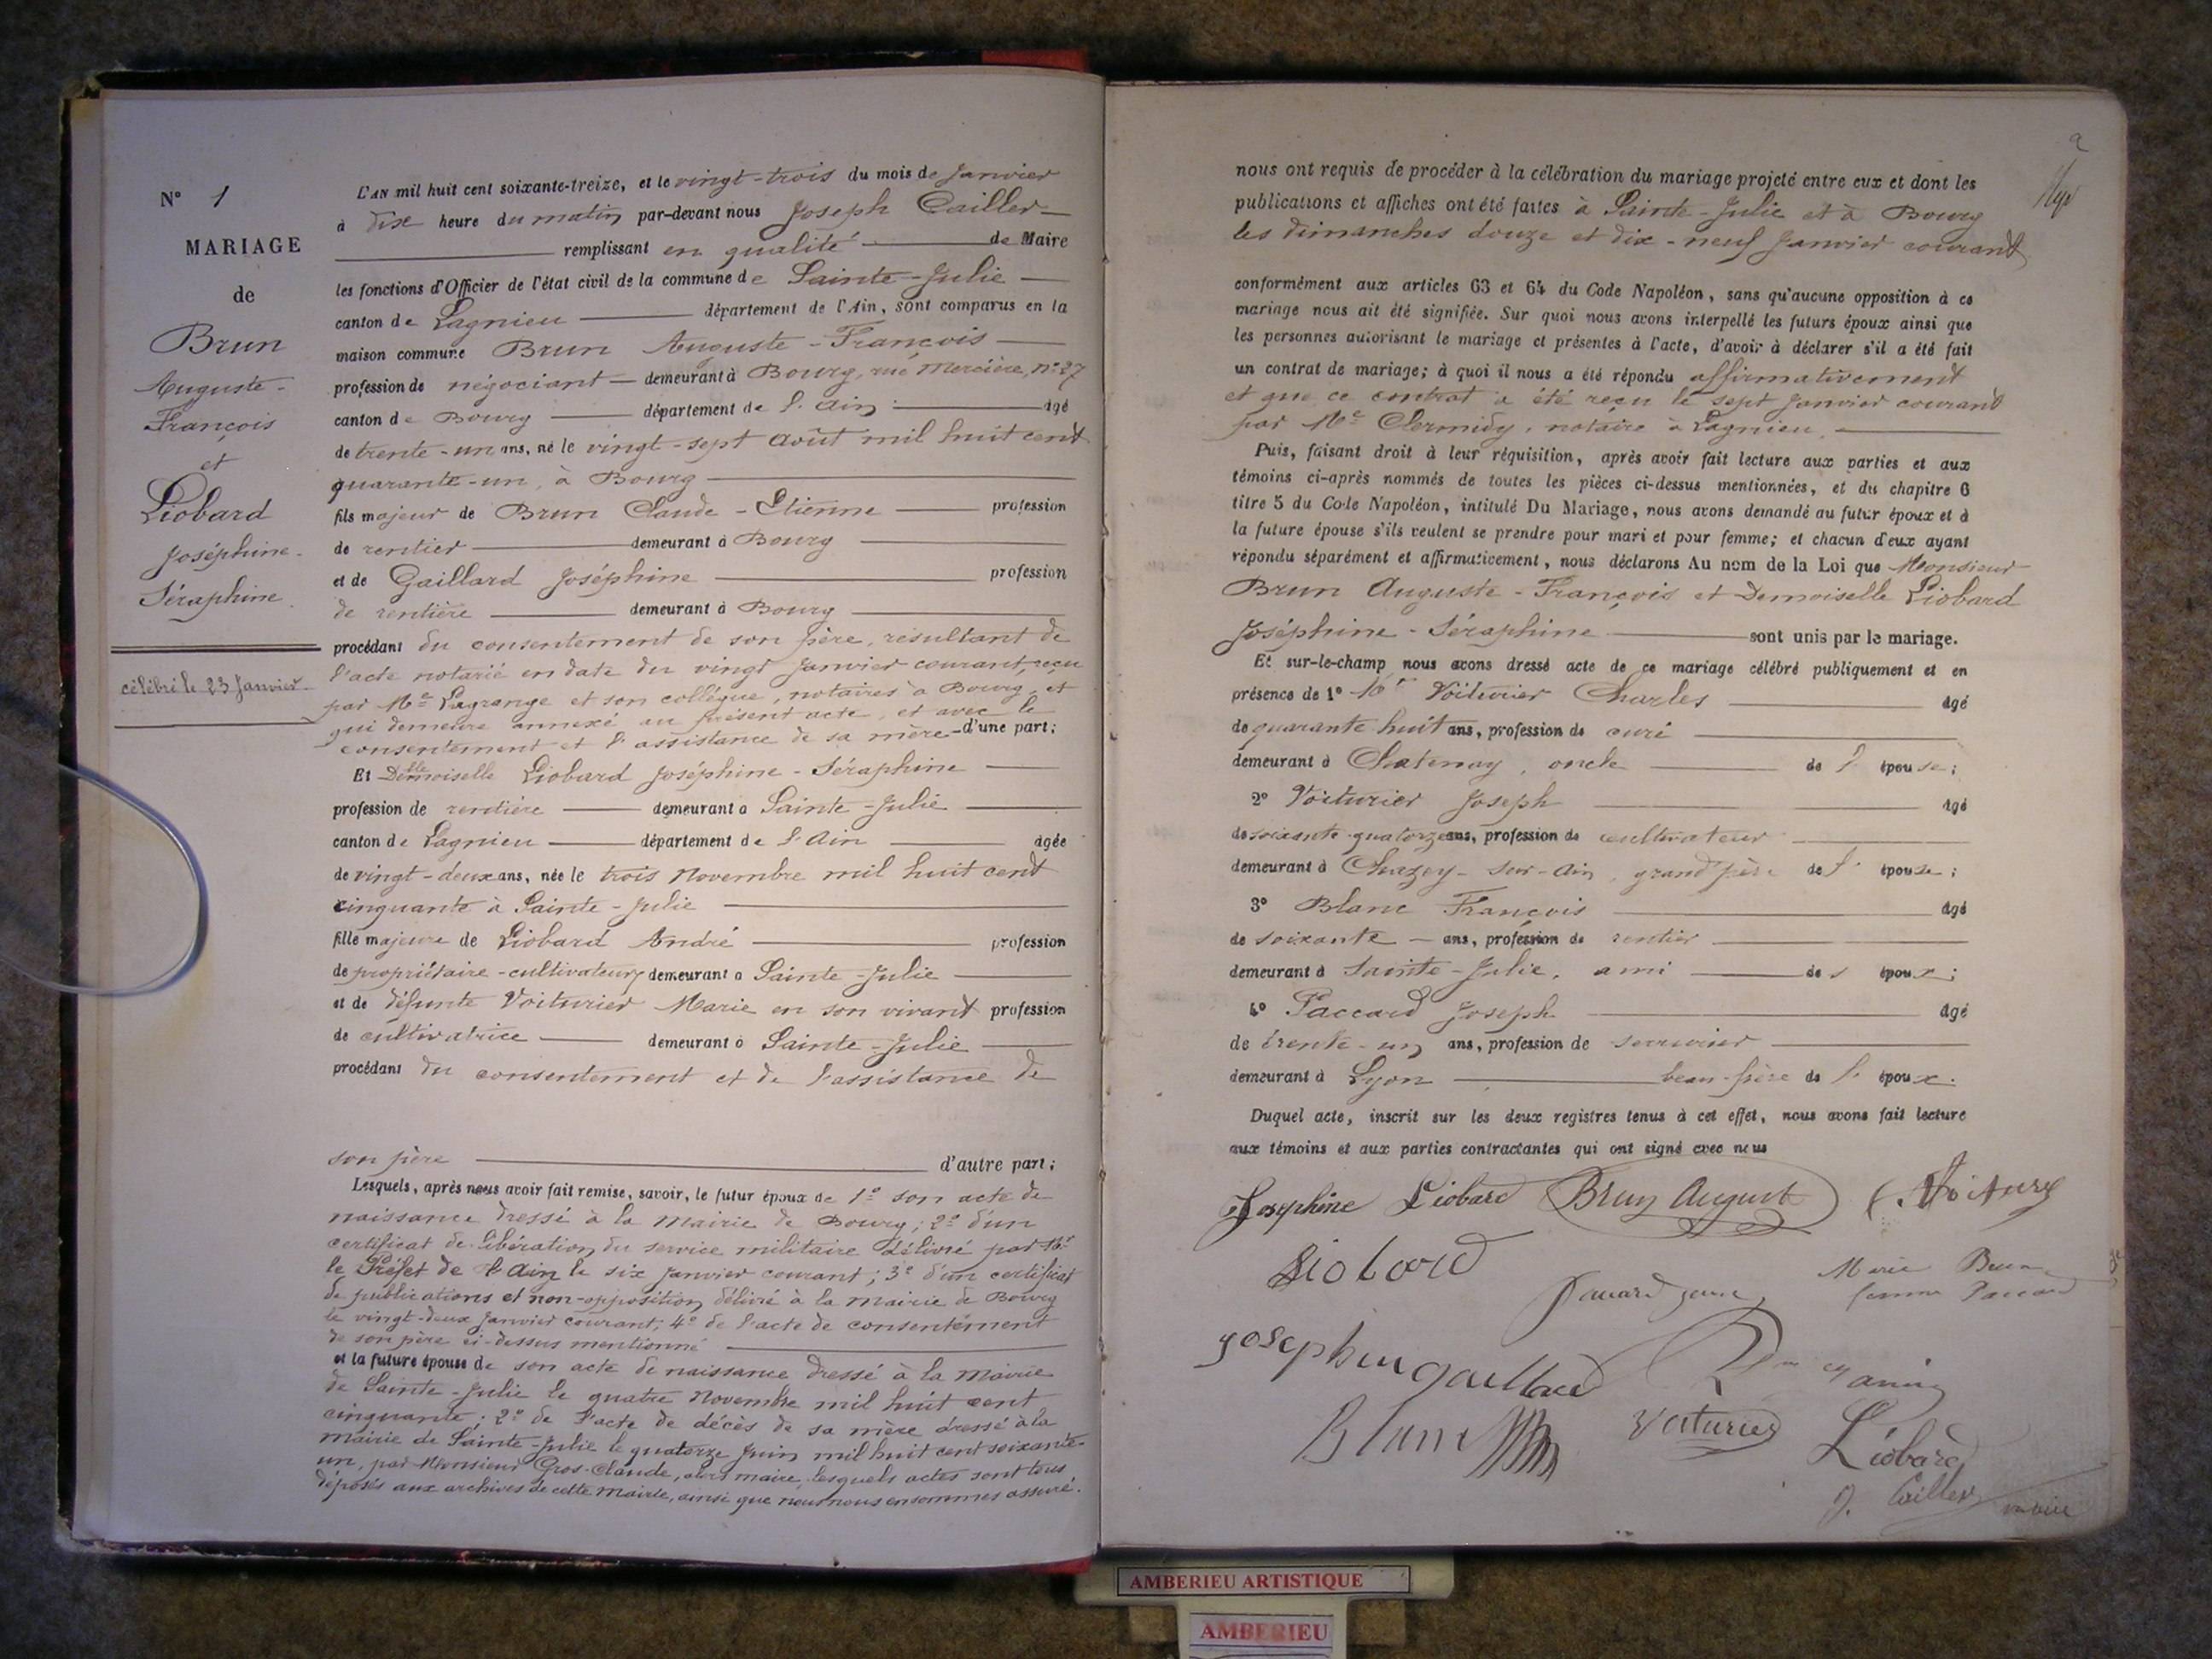 N° 1
MARIAGE
de
Brun
Auguste-
François
et
Liobard
Joséphine-
Séraphine.
célébré le 23 Janvier
L'AN mil huit cent soixante-treize, et le vingt-trois du mois de Janvier
à dix heure du matin par-devant nous Joseph Cailler
remplissant en qualité de Maire
les fonctions d'Officier de l'état civil de la commune de Sainte-Julie
canton de Lagnieu département de l'Ain, sont comparus en la
maison commune Brun Auguste-François
profession de négociant demeurant à Bourg, rue Mercière, n° 27
canton de Bourg département de l'Ain âgé
de trente-un ans, né le vingt-sept Août mil huit cent
quarante-un, à Bourg
fils majeur de Brun Claude-Etienne profession
de rentier demeurant à Bourg
et de Gaillard Joséphine profession
de rentière demeurant à Bourg
procédant du consentement de son père, résultant de
l'acte notarié en date du vingt Janvier courant, reçu
par Me Lagrange et son collègue, notaires à Bourg, et
qui demeure annexé au présent acte, et avec le
consentement et l'assistance de sa mère d'une part;
Et Demoiselle Liobard Joséphine-Séraphine
profession de rentière demeurant à Sainte-Julie
canton de Lagnieu département de l'Ain âgée
de vingt-deux ans, née le trois Novembre mil huit cent
cinquante à Sainte-Julie
fille majeure de Liobard André profession
de propriétaire-cultivateur demeurant à Sainte-Julie
et de défunte Voiturier Marie en son vivant profession
de cultivatrice demeurant à Sainte-Julie
procédant du consentement et de l'assistance de
son père d'autre part;
Lesquels, après nous avoir fait remise, savoir, le futur époux de 1° son acte de
naissance dressé à la Mairie de Bourg; 2° d'un
certificat de libération du service militaire délivré par Mr
le Préfet de l'Ain le six Janvier courant; 3° d'un certificat
de publications et non-opposition délivré à la Mairie de Bourg
le vingt-deux Janvier courant; 4° de l'acte de consentement
de son père ci-dessus mentionné
et la future épouse de son acte de naissance dressé à la Mairie
de Sainte-Julie le quatre Novembre mil huit cent
cinquante; 2° de l'acte de décès de sa mère dressé à la
mairie de Sainte-Julie le quatorze Juin mil huit cent soixante-
un, par Monsieur Gros-Claude, alors maire, lesquels actes sont tous
déposés aux archives de cette Mairie, ainsi que nous nous en sommes assuré.
2
nous ont requis de procéder à la célébration du mariage projeté entre eux et dont les
publications et affiches ont été faites à Sainte-Julie et à Bourg
les dimanches douze et dix-neuf Janvier courant
conformément aux articles 63 et 64 du Code Napoléon, sans qu'aucune opposition à ce
mariage nous ait été signifiée. Sur quoi nous avons interpellé les futurs époux ainsi que
les personnes autorisant le mariage et présentes à l'acte, d'avoir à déclarer s'il a été fait
un contrat de mariage; à quoi il nous a été répondu affirmativement
et que ce contrat a été reçu le sept Janvier courant
par Me Clermidy, notaire à Lagnieu.
Puis, faisant droit à leur réquisition, après avoir fait lecture aux parties et aux
témoins ci-après nommés de toutes les pièces ci-dessus mentionnées, et du chapitre 6
titre 5 du Code Napoléon, intitulé Du Mariage, nous avons demandé au futur époux et à
la future épouse s'ils veulent se prendre pour mari et pour femme; et chacun d'eux ayant
répondu séparément et affirmativement, nous déclarons Au nom de la Loi que Monsieur
Brun Auguste-François et Demoiselle Liobard
Joséphine-Séraphine sont unis par le mariage.
Et sur-le-champ nous avons dressé acte de ce mariage célébré publiquement et en
présence de 1° Mr Voiturier Charles âgé
de quarante huit ans, profession de curé
demeurant à Chatenay, oncle de l' épouse;
2° Voiturier Joseph âgé
de soixante-quatorze ans, profession de cultivateur
demeurant à Chazey-sur-Ain, grand père de l' épouse;
3° Blanc François âgé
de soixante ans, profession de rentier
demeurant à Sainte-Julie, ami des époux;
4° Paccard Joseph âgé
de trente-un ans, profession de serrurier
demeurant à Lyon beau-frère de l' époux.
Duquel acte, inscrit sur les deux registres tenus à cet effet, nous avons fait lecture
aux témoins et aux parties contractantes qui ont signé avec nous
Josephine Liobard Brun August
Liobard
Marie Brun
femme Paccard
Josephin gaillard
Blanc Voiturier Liobard
J. Cailler maire
AMBERIEU ARTISTIQUE
AMBERIEU